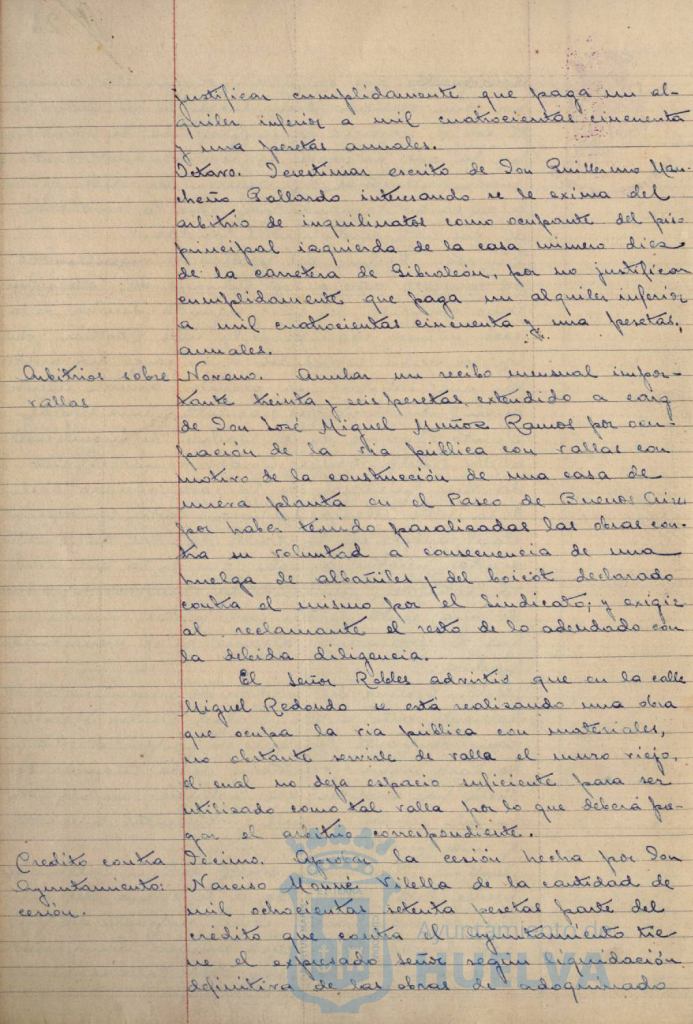 justificar cumplidamente que paga un al-
quiler inferior a mil cuatrocientas cincuenta
y una pesetas anuales.
Octavo. Desestimar escrito de Don Guillermo Man-
cheño Gallardo interesando se le exima del
arbitrio de inquilinatos como ocupante del piso
principal izquierda de la casa número diez
de la carretera de Gibraleón, por no justificar
cumplidamente que paga un alquiler inferior
a mil cuatrocientas cincuenta y una pesetas,
anuales.
Arbitrios sobre vallas
Noveno. Anular un recibo mensual impor-
tante treinta y seis pesetas, extendido a cargo
de Don José Miguel Muñoz Ramos por ocu-
pación de la vía pública con vallas con
motivo de la construcción de una casa de
nueva planta en el Paseo de Buenos Aires
por haber tenido paralizadas las obras con-
tra su voluntad a consecuencia de una
huelga de albañiles y del boicot declarado
contra el mismo por el Sindicato; y exigir
al reclamante el resto de lo adeudado con
la debida diligencia.
El Señor Robles advirtió que en la calle
Miguel Redondo se está realizando una obra
que ocupa la vía pública con materiales,
no obstante servirle de valla el muro viejo,
el cual no deja espacio suficiente para ser
utilizado como tal valla por lo que deberá pa-
gar el arbitrio correspondiente.
Crédito contra
Ayuntamiento:
cesión.
Décimo. Aprobar la cesión hecha por Don
Narciso Monné Vilella de la cantidad de
mil ochocientas setenta pesetas parte del
crédito que contra el Ayuntamiento tie-
ne el expresado señor según liquidación
definitiva de las obras de adoquinado
Ayuntamiento de
HUELVA